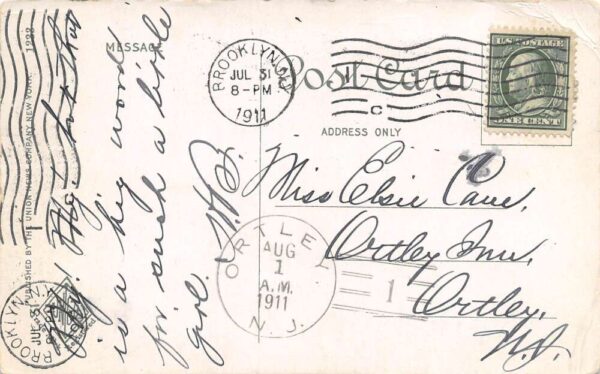 MESSAGE
Post Card
ADDRESS ONLY
PUBLISHED BY THE UNION NEWS COMPANY, NEW YORK.
1223
BROOKLYN, N.Y.
JUL 31
8-PM
1911
C
U.S. POSTAGE
ONE CENT
My! My! but that
is a big word
for such a little
girl. H.B.
Miss Elsie Cane,
Ortley Inn,
Ortley,
N.J.
ORTLEY
AUG
1
A.M.
1911
N.J.
1
BROOKLYN
JUL 31
1911